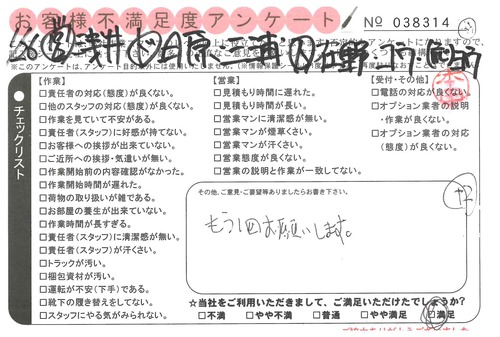 お客様不満足度アンケート
No 038314
【作業】
□責任者の対応(態度)が良くない。
□他のスタッフの対応(態度)が良くない。
□作業を見ていて不安がある。
□責任者(スタッフ)に好感が持てない。
□お客様への挨拶が出来ていない。
□ご近所への挨拶・気遣いが無い。
□作業開始前の内容確認がなかった。
□作業開始時間が遅れた。
□荷物の取り扱いが雑である。
□お部屋の養生が出来ていない。
□作業時間が長すぎる。
□責任者(スタッフ)に清潔感が無い。
□責任者(スタッフ)が汗くさい。
□トラックが汚い。
□梱包資材が汚い。
□運転が不安(下手)である。
□靴下の履き替えをしてない。
□スタッフにやる気がみられない。
【営業】
□見積もり時間に遅れた。
□見積もり時間が長い。
□営業マンに清潔感が無い。
□営業マンが煙草くさい。
□営業マンが汗くさい。
□営業態度が良くない。
□営業の説明と作業が一致してない。
【受付・その他】
□電話の対応が良くない。
□オプション業者の説明
・作業が良くない。
□オプション業者の対応
(態度)が良くない。
チェックリスト
その他、ご意見・ご要望等ありましたらお書き下さい。
もう1回お願いします。
☆当社をご利用いただきまして、ご満足いただけたでしょうか?
□不満 □やや不満 □普通 □やや満足 □満足